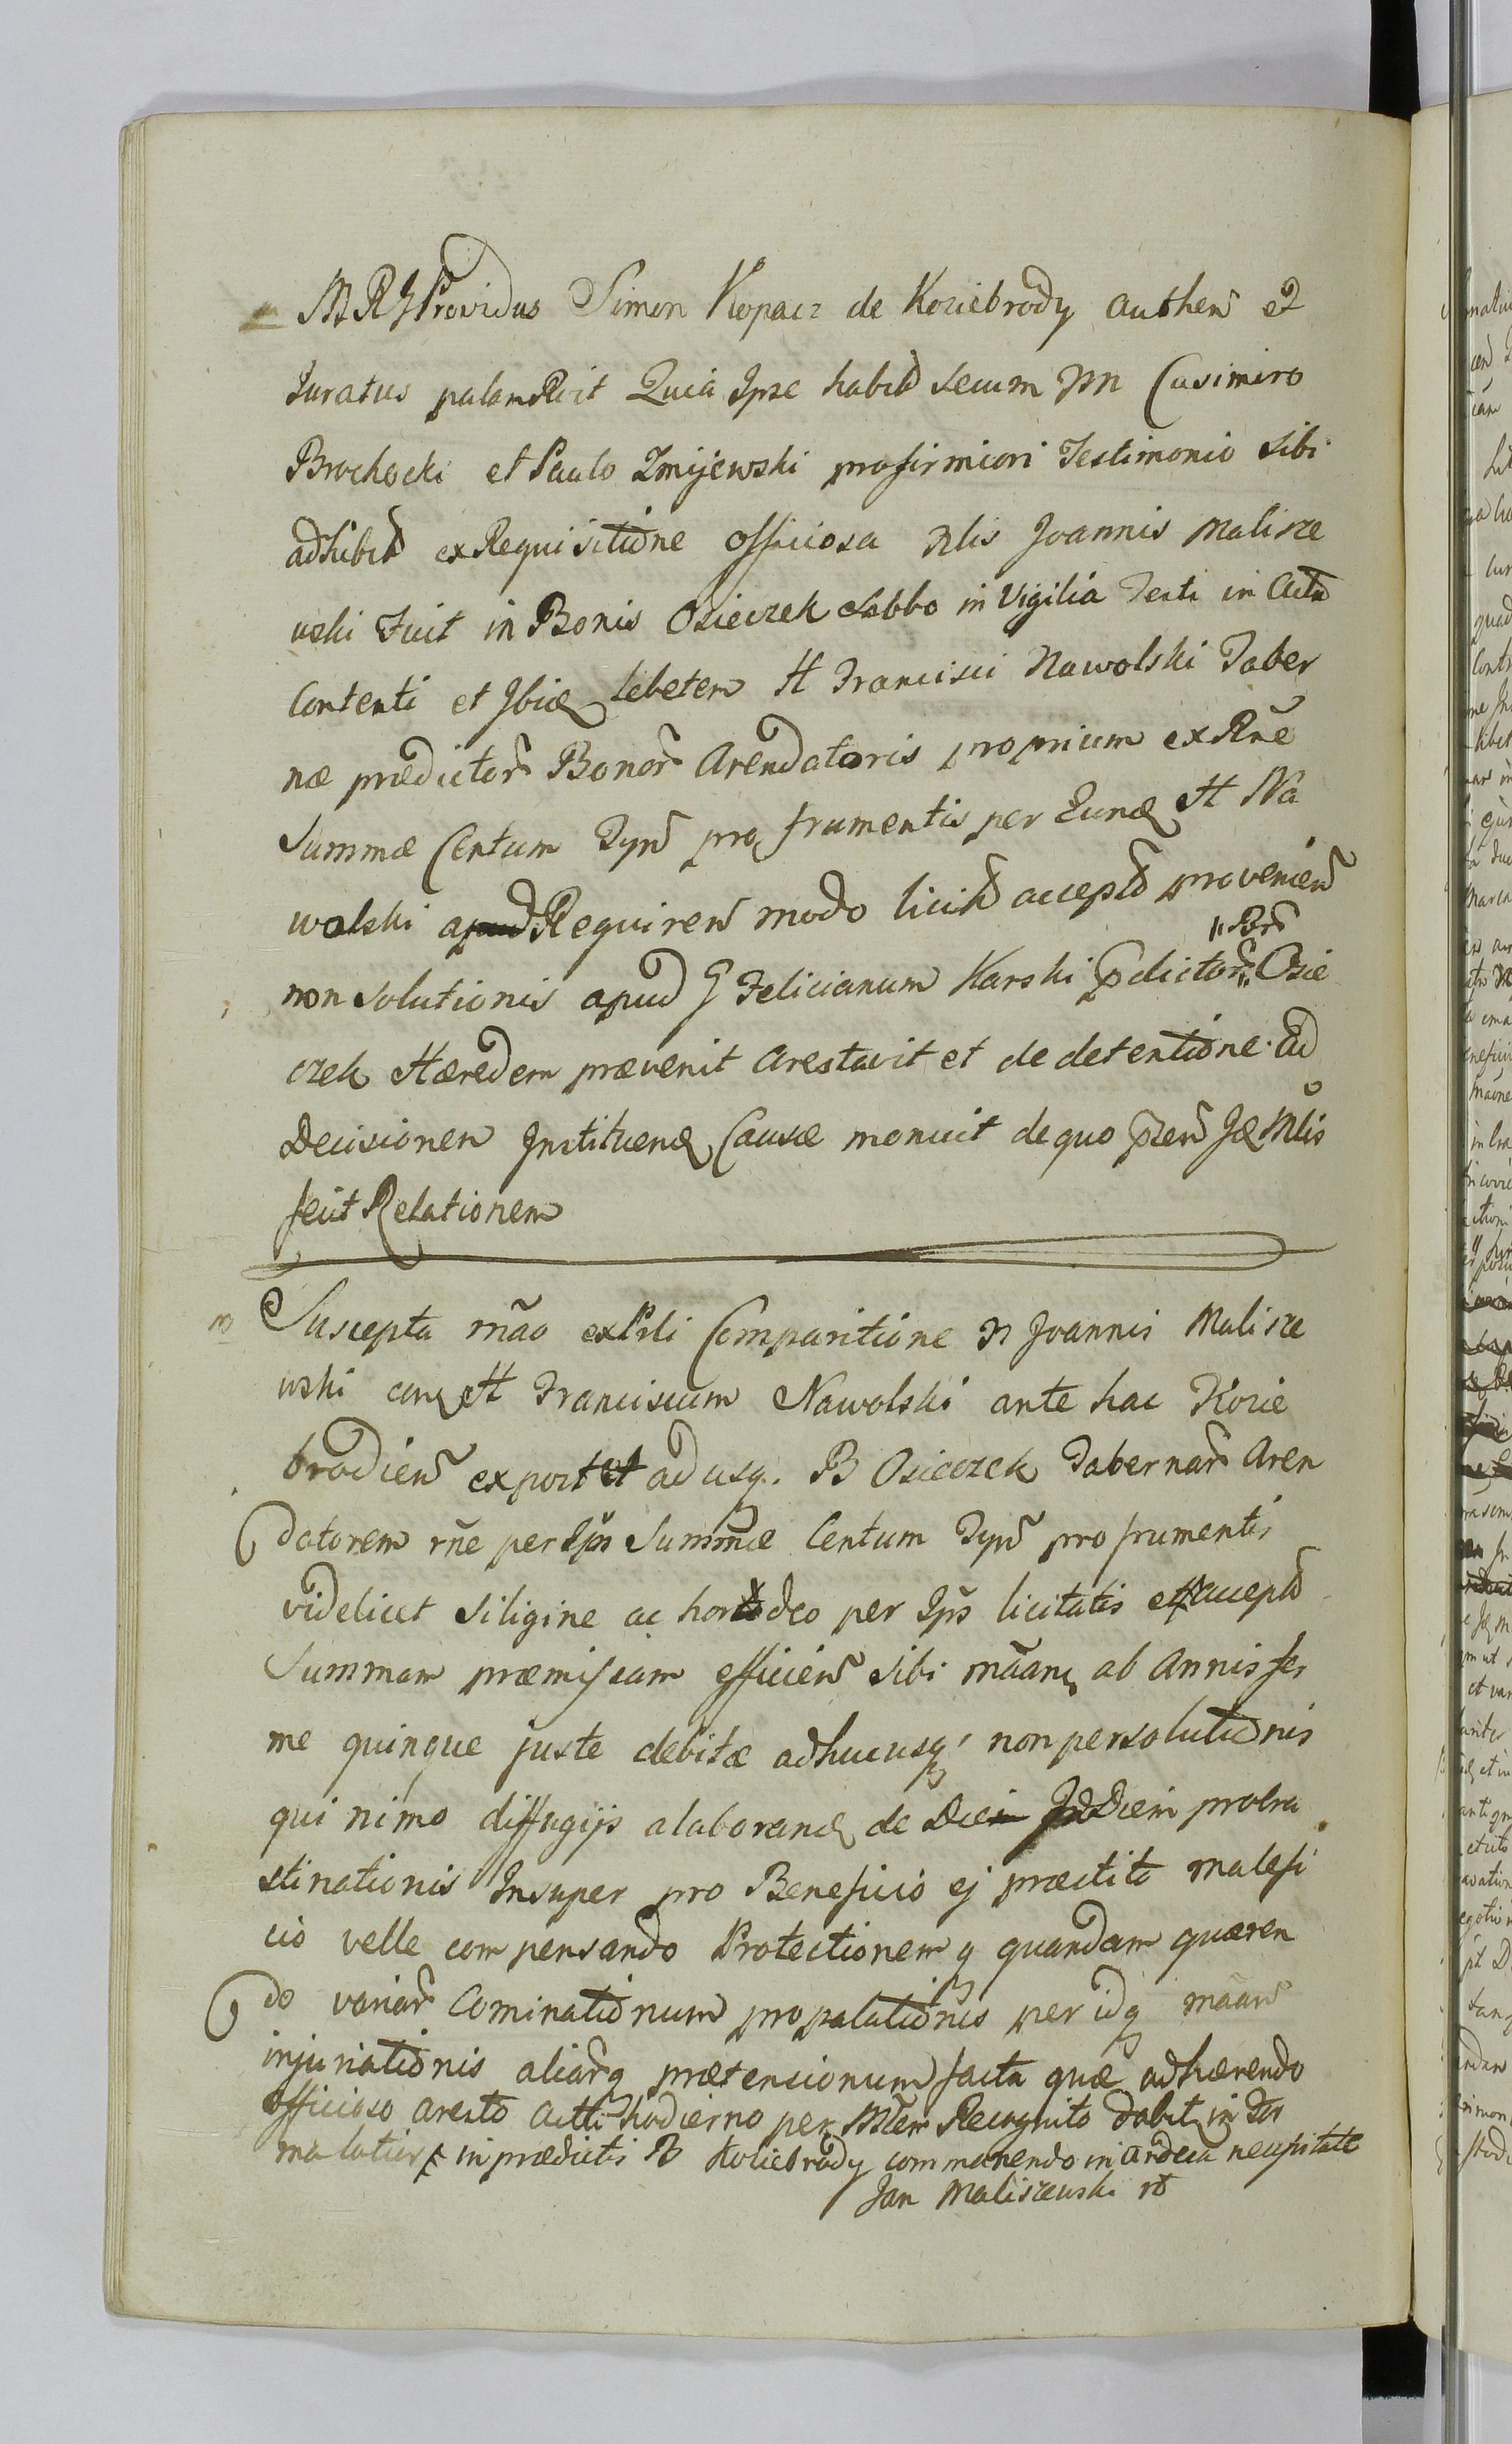 MRG Providus Simon Kopacz de Koziebrody authen et
Juratus palam Rcit Quia Ipse habit secum NN Casimiro
Brochocki et Paulo Zmijewski pro firmiori Testimonio sibi
adhibit ex Requisitione officiosa Nlis Joannis Malisze
wski fuit in Bonis Osieczek Sabbo in Vigilia Festi in Actu
Contenti et Ibiq lebetem H Francisci Nawolski Taber
næ prædictor Bonor Arendatoris proprium ex Rne
Summæ Centum Tynf pro frumentis per Eund H Na
wolski apud Requiren modo licit accept provenien
non solutionis apud G Felicianum Karski pdictor "Bor" Osie
czek Hæredem prævenit arestavit et de detentione Ad
Decisionem Instituend Causæ monuit de quo pten Jd Mlis
fecit Relationem
Suscepta mao ex Prli Comparitione N Joannis Malisze
wski con H Franciscum Nawolski ante hac Kozie
brodien expost et ad usq. B Osieczek Tabernar Aren
datorem rne per Ips Summæ Centum Tynf pro frumentis
videlicet siligine ac hordeo per Ips licitatis et accept
Summam præmissam efficien sibi maan ab Annis fer
me quinque juste debitæ adhucusq non persolutionis
qui nimo diffugijs alaborand de Die in Diem procra
stinationis Insuper pro Beneficio ej præstito malefi
cio velle compensando Protectionemq quandam quæren
do variar Cominationum propalationis per idq maan
injuriationis aliarq prætensionum facta quæ adhærendo
officioso aresto actu hodierno per Mlem Recognito dabit in For
ma latius in prædictis B Koziebrody commanendo in necessitate
Jan Maliszewski